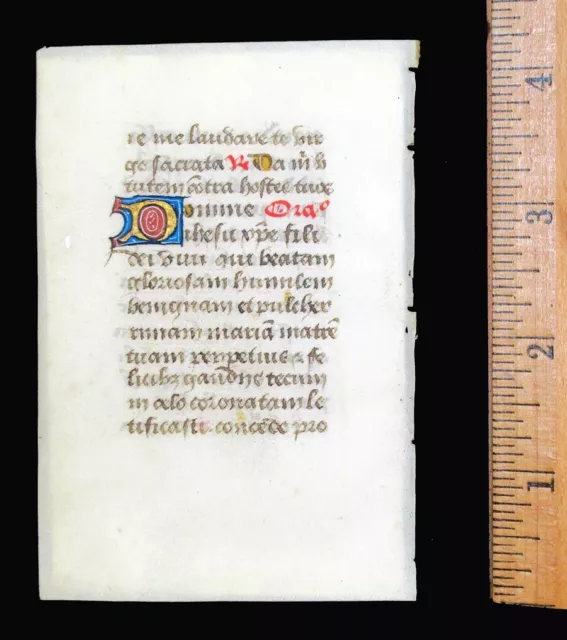 re me laudare te vir
go sacrata ℟ Da m̄ v
tutem cōtra hostes tuos
Domine Orao
ihesu xp̄e fili
dei viui qui beatam
gloriosam humilem
benignam et pulcher
rimam mariā matrē
tuam perpetuis & fe
licibꝫ tecum
in celo coronatam le
tificasti concede pro
4
3
2
1